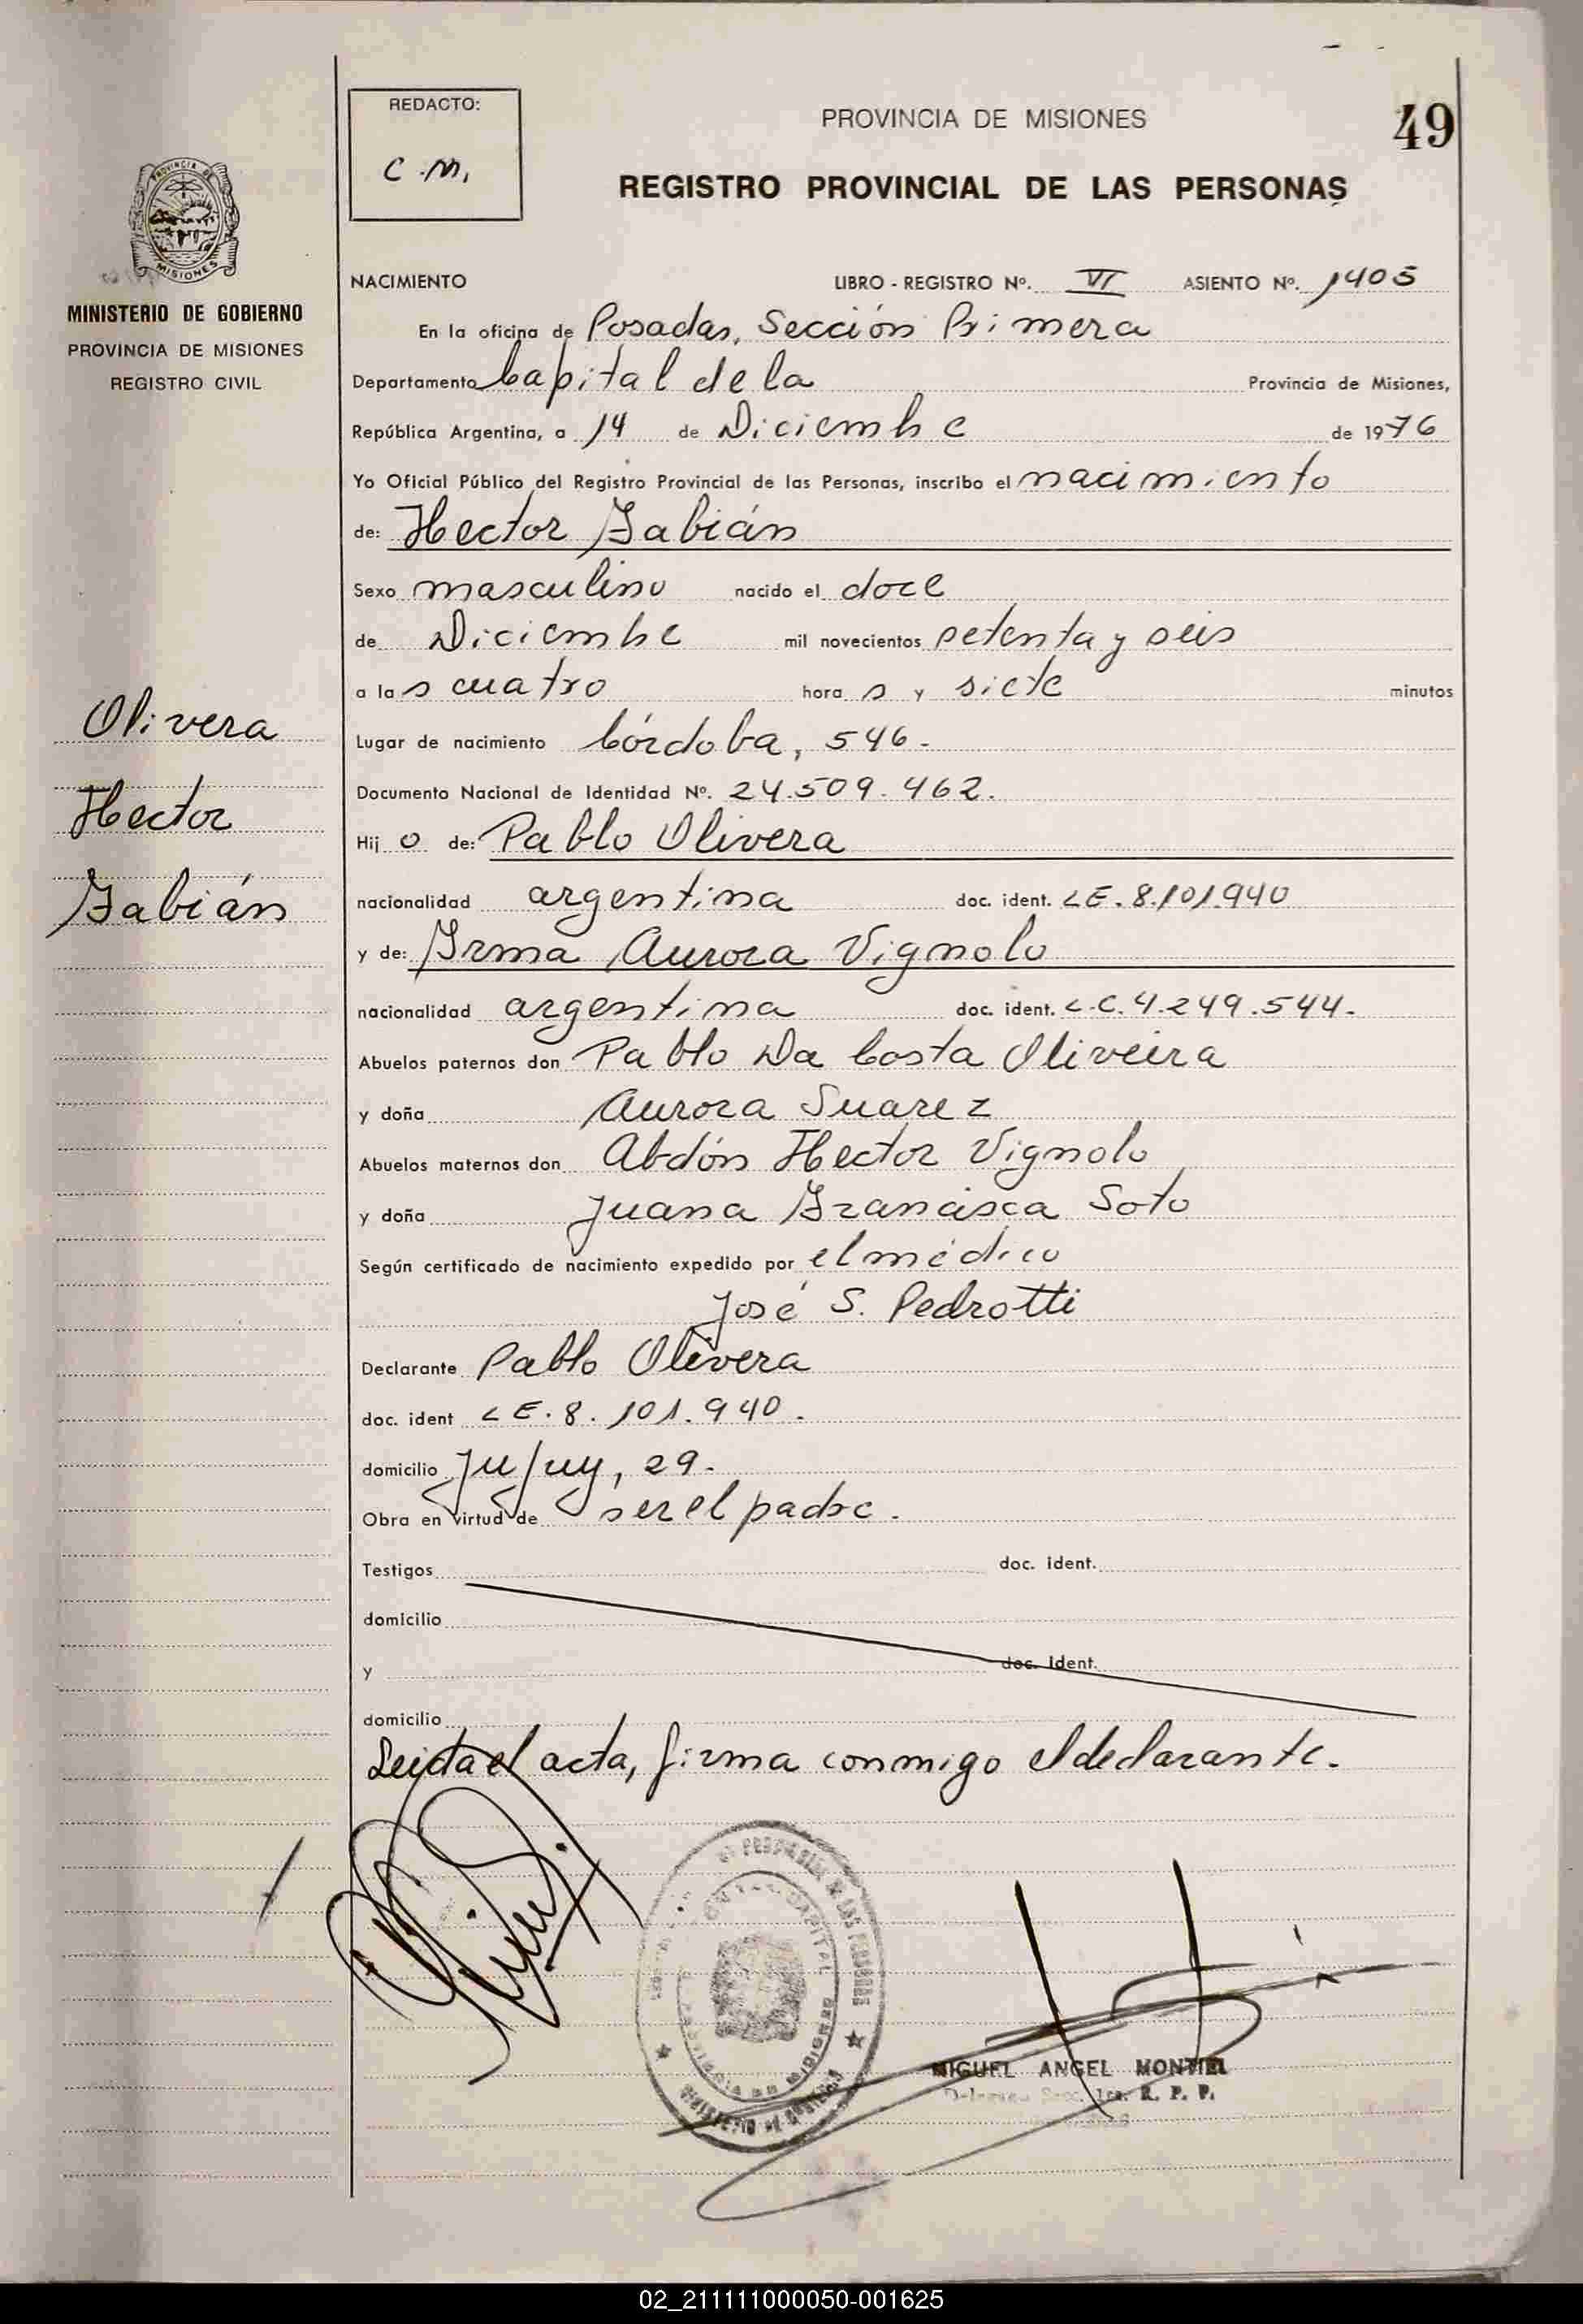 REDACTO:
C.M.
PROVINCIA DE MISIONES
49
REGISTRO PROVINCIAL DE LAS PERSONAS
PROVINCIA DE
MISIONES
MINISTERIO DE GOBIERNO
PROVINCIA DE MISIONES
REGISTRO CIVIL
NACIMIENTO LIBRO - REGISTRO Nº. VI ASIENTO Nº. 1405
En la oficina de Posadas, Sección Primera
Departamento Capital de la Provincia de Misiones,
República Argentina, a 14 de Diciembre de 1976
Yo Oficial Público del Registro Provincial de las Personas, inscribo el nacimiento
de: Hector Fabián
Sexo masculino nacido el doce
de Diciembre mil novecientos setenta y seis
a las cuatro horas y siete minutos
Lugar de nacimiento Córdoba, 546.
Documento Nacional de Identidad Nº. 24.509.462.
Hijo de: Pablo Olivera
nacionalidad argentina doc. ident. LE. 8.101.940
y de: Irma Aurora Vignolo
nacionalidad argentina doc. ident. L.C. 4.249.544.
Abuelos paternos don Pablo Da Costa Oliveira
y doña Aurora Suarez
Abuelos maternos don Abdón Hector Vignolo
y doña Juana Francisca Soto
Según certificado de nacimiento expedido por el médico
José S. Pedrotti
Declarante Pablo Olivera
doc. ident LE. 8. 101.940.
domicilio Jujuy, 29.
Obra en virtud de ser el padre.
Testigos doc. ident.
domicilio
y doc. ident.
domicilio
Leida el acta, firma conmigo el declarante.
Olivera
Hector
Fabián
MIGUEL ANGEL MONTIEL
1ra. R. P. P.
02_211111000050-001625